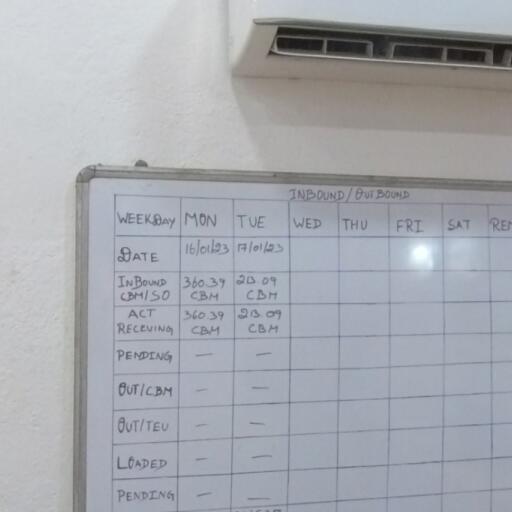 INBOUND/OUTBOUND
WEEKDAY MON TUE WED THU FRI SAT
DATE 16/01/23 17/01/23
INBOUND 360.39
CBM/SO CBM CBM
ACT 360.39
RECEVING CBM CBM
PENDING — —
OUT/CBM — —
OUT/TEU — —
LOADED — —
PENDING — —